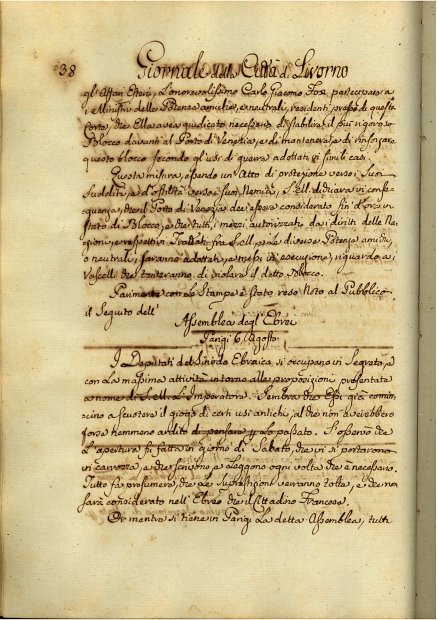 38 Giornale della Città di Livorno
gl'Affari Esteri, L'onorevolissimo Carlo Giacomo Fox partecipare a
i Ministri delle Potenze amiche, e neutrali, residenti presso di questa
Corte, che Ella avea giudicato necessario di stabilire il più rigoroso
Blocco davanti al Porto di Venezia, e di mantenere, e di rinforzare
questo blocco secondo gl'usi di guerra adottati in simili casi.
Questa misura, essendo un'Atto di protezione verso i suoi
Sudditi, e d'ostilità verso i suoi Nemici, S. E. dichiarava in conse-
guenza, che il Porto di Venezia dee essere considerato fin d'ora in
stato di Blocco, e che tutti i mezzi autorizzati da i diritti delle Na-
zioni, e rispettivi Trattati fra S. M. e le diverse Potenze amiche,
o neutrali, saranno adottati, e messi in esecuzione, riguardo a i
Vascelli che tenteranno di violare il detto Blocco.
Parimente con le Stampe è stato reso Noto al Pubblico
il Seguito dell'
Assemblea degl'Ebrei
Parigi 6 Agosto
I Deputati del Sinodo Ebraico, si occupano in Segreto, e
con La massima attività intorno alle proposizioni presentate
a nome di S. M. L'Imperatore. Sembra che Essi già comin-
cino a scuotere il giogo di certi usi antichi, al che non averebbero
forse nemmeno ardito di pensare per Lo passato. S'osservò che
L'apertura fu fatta in giorno di Sabato, che vi si portarono
in carrozza, e che scrivono, e Leggono ogni volta che è necessario.
Tutto fa presumere, che Le Superstizioni verranno tolte, e che non
sarà considerato nell'Ebreo che il Cittadino Francese.
Or mentre si tiene in Parigi La detta Assemblea, tutti